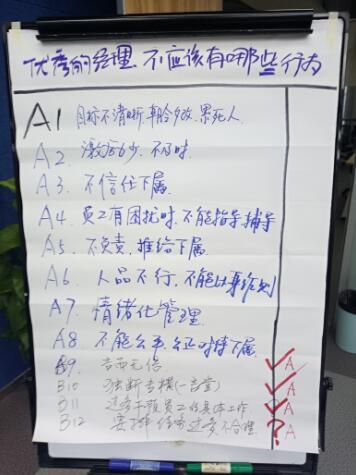 优秀的经理、不应该有哪些行为
A1 目标不清晰、朝令夕改、累死人、
A2、激励少、不及时、
A3、不信任下属、
A4、员工有困扰时、不能指导、辅导
A5、不负责、推给下属、
A6、人品不行、不能以身作则
A7、情绪化管理、
A8 不能公平、公正对待下属、
B9、言而无信 A
B10 独断专横(一言堂) A
B11 过多干预员工的具体工作、 A
B12 工作任务过多不合理、 ? A